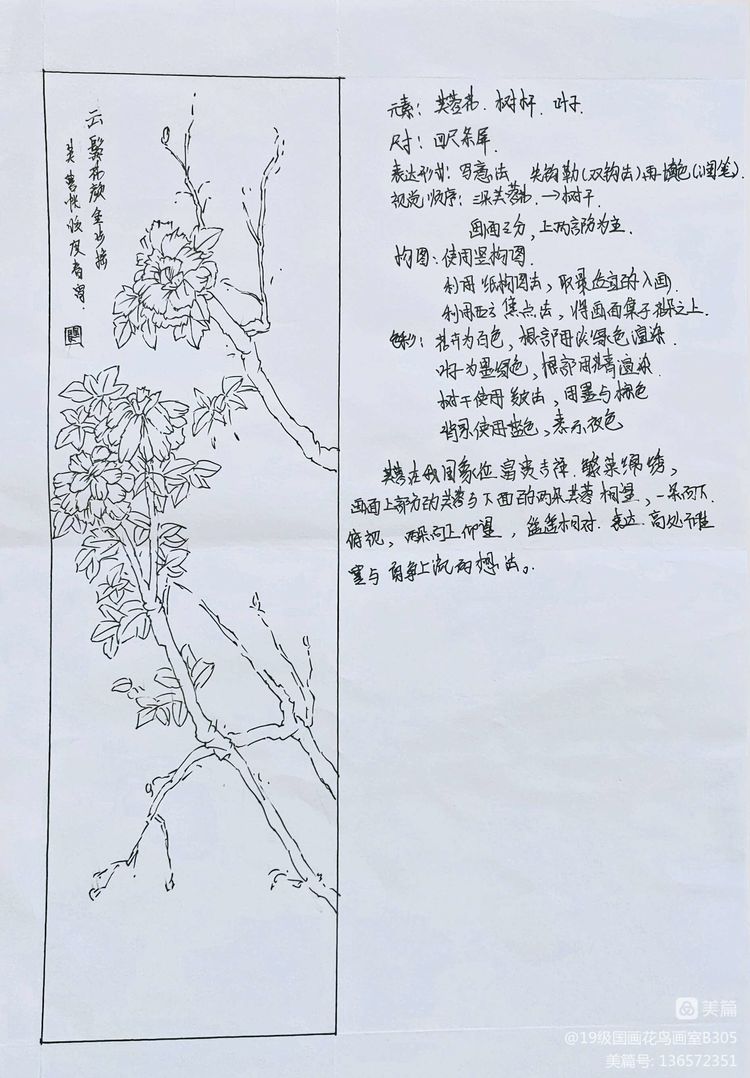 云鬓花颜金步摇
芙蓉帐暖度春宵
元素：芙蓉花．树杆．叶子．
尺寸：四尺条屏．
表达形式：写意法，先钩勒(双钩法)再填色(润笔)．
视觉顺序：三朵芙蓉花．→树干．
画面三分，上两部分为主．
构图：使用竖构图．
利用 纸构图法，取最适宜的入画．
利用西方焦点法，将画面集于花朵之上．
色彩：花卉为白色，根部用淡绿色渲染．
叶子为墨绿色，根部用花青渲染．
树干使用皴法，用墨与棕色
背景使用蓝色，表示夜色
芙蓉在我国象征 富贵吉祥．繁荣锦绣，
画面上部分的芙蓉与下面的两朵芙蓉相望，一朵向下
俯视，两朵向上仰望，遥遥相对．表达．高处不胜
寒与 力争上流的想法。
美篇
@19级国画花鸟画室B305
美篇号: 136572351